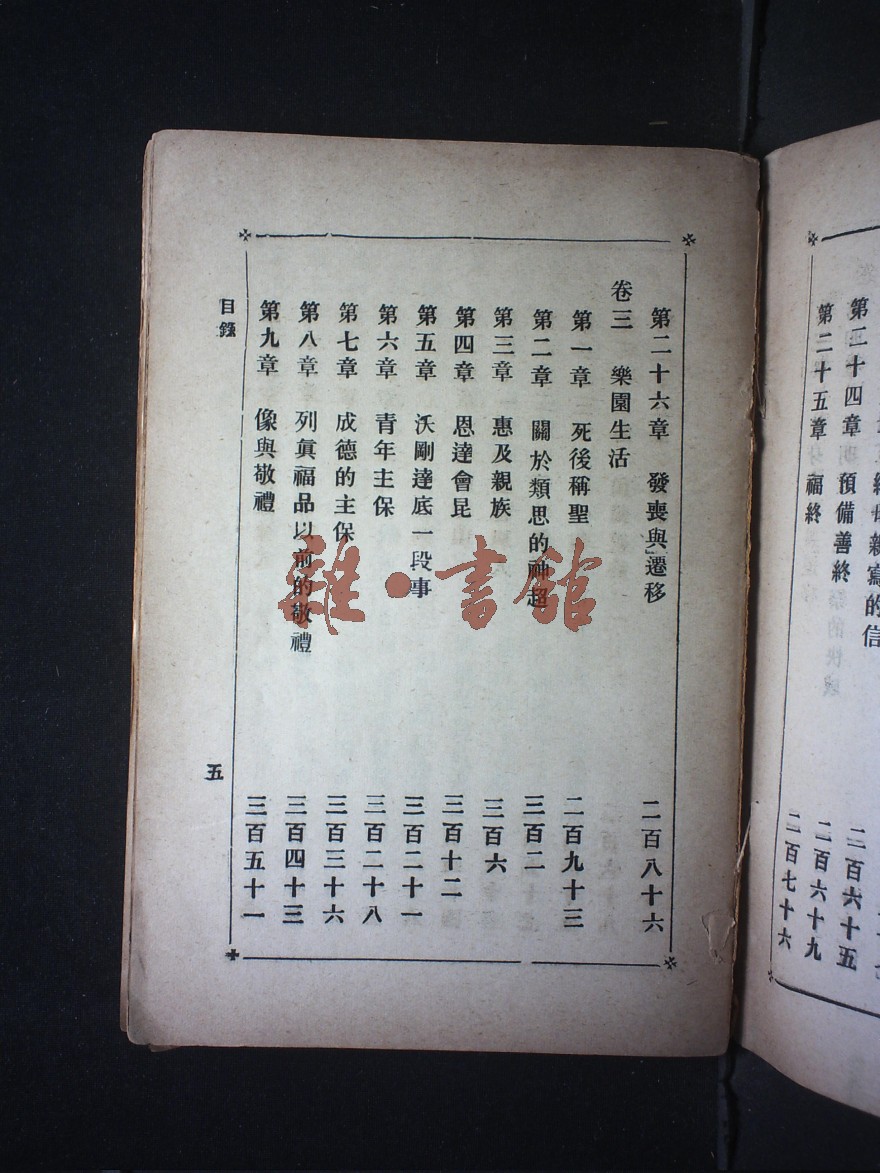 第二十四章 預備善終 二百六十五
第二十五章 福終 二百七十六
第二十六章 發喪與遷移 二百八十六
卷三 樂園生活
第一章 死後稱聖 二百九十三
第二章 關於類思的神超 三百二
第三章 惠及親族 三百六
第四章 恩達會昆 三百十二
第五章 沃剛達底一段事 三百二十一
第六章 青年主保 三百二十八
第七章 成德的主保 三百三十六
第八章 列眞福品以前的敬禮 三百四十三
第九章 像與敬禮 三百五十一
目錄
五
雜·書館